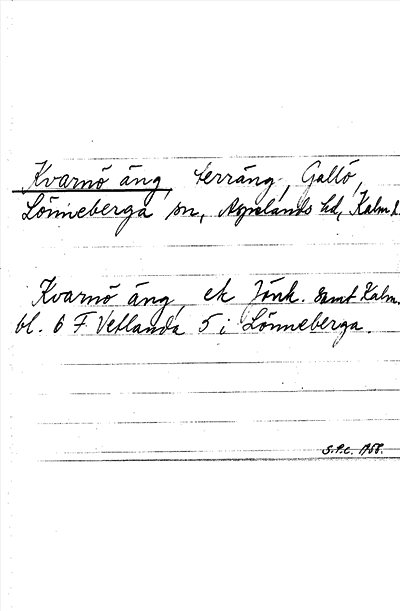 Kvarnö äng, terräng, Gallö,
Lönneberga sn, Aspelands hd, Kalm. l.
Kvarnö äng, ek Jönk. samt Kalm.
bl. 6 F Vetlanda 5 i Lönneberga.
S.P.C. 1958.